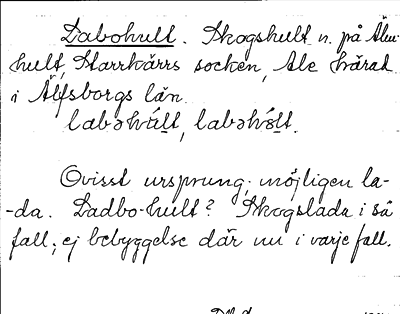 Labohult. Skogshult n. på Älm-
hult, Starrkärrs socken, Ale härad
i Älfsborgs län.
labəhúlt, labəhɵ̀lt.
Ovisst ursprung; möjligen la-
-da. Ladbo-hult? Skogslada i så
fall; ej bebyggelse där nu i varje fall.